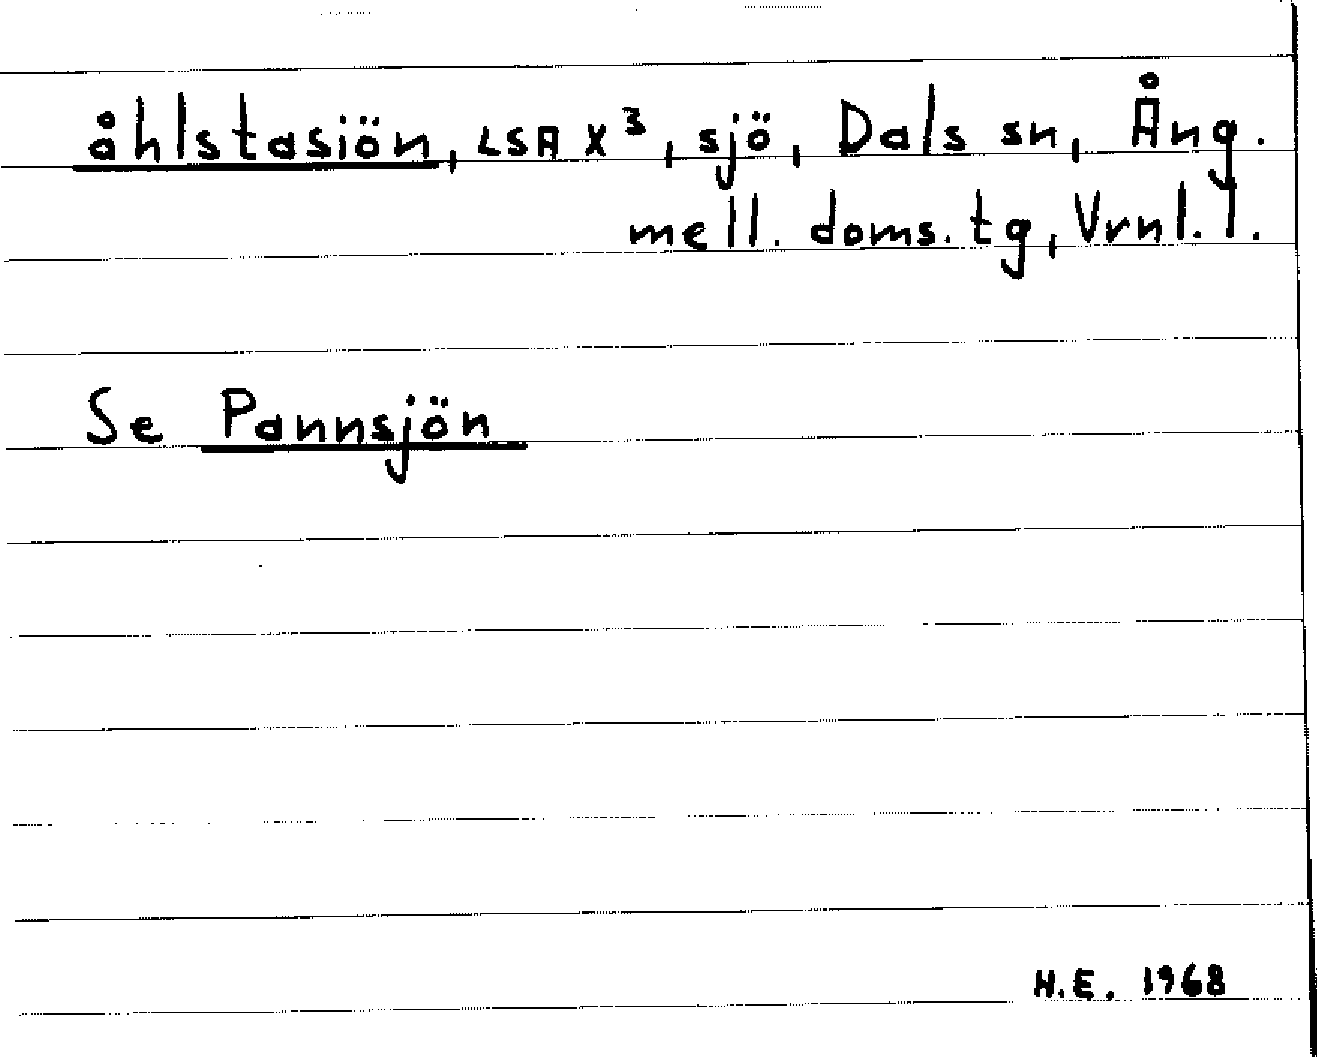 åhlstasiön, LSA X³, sjö, Dals sn, Ång.
mell. doms. tg, Vrnl. l.
Se Pannsjön
H.E. 1968